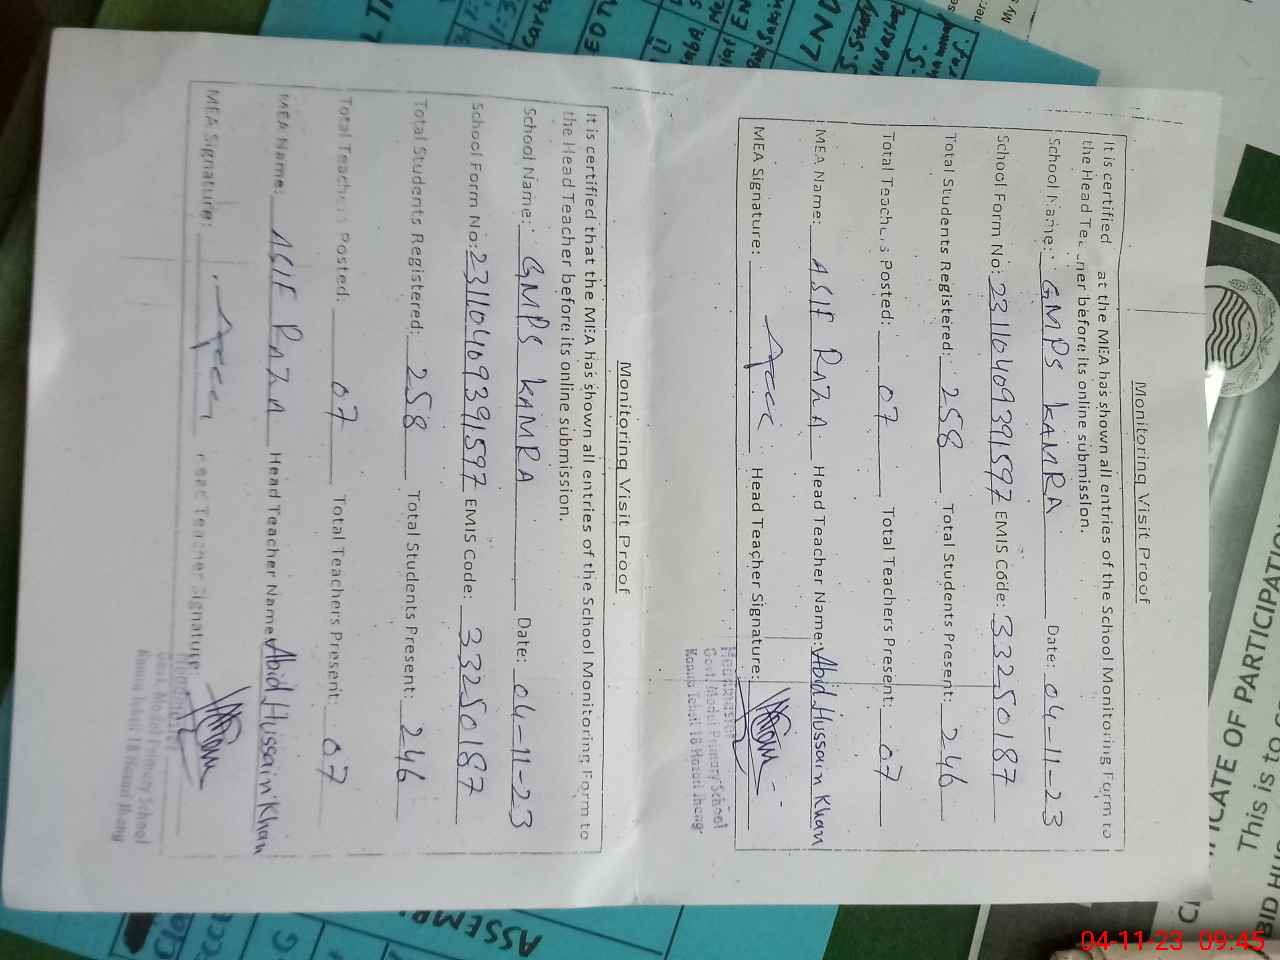 Monitoring Visit Proof
It is certified at the MEA has shown all entries of the School Monitoring Form to
the Head Te ner before its online submission.
School Name: GMPS KAMRA Date: 04-11-23
School Form No: 23110409391597 EMIS Code: 33250187
Total Students Registered: 258 Total Students Present: 246
Total Teachers Posted: 07 Total Teachers Present: 07
MEA Name: ASIF RAZA Head Teacher Name: Abid Hussain Khan
MEA Signature: Head Teacher Signature:
Headmaster
Govt. Model Primary School
Kamra Tehsil 18 Hazari Jhang
Monitoring Visit Proof
It is certified that the MEA has shown all entries of the School Monitoring Form to
the Head Teacher before its online submission.
School Name: GMPS KAMRA Date: 04-11-23
School Form No: 23110409391597 EMIS Code: 33250187
Total Students Registered: 258 Total Students Present: 246
Total Teachers Posted: 07 Total Teachers Present: 07
MEA Name: ASIF RAZA Head Teacher Name: Abid Hussain Khan
MEA Signature: Head Teacher Signature:
Headmaster
Govt. Model Primary School
Kamra Tehsil 18 Hazari Jhang
CATE OF PARTICIPATIO
This is to
BID HUS
ASSEMB
S. Study
LND
04-11-23 09:45